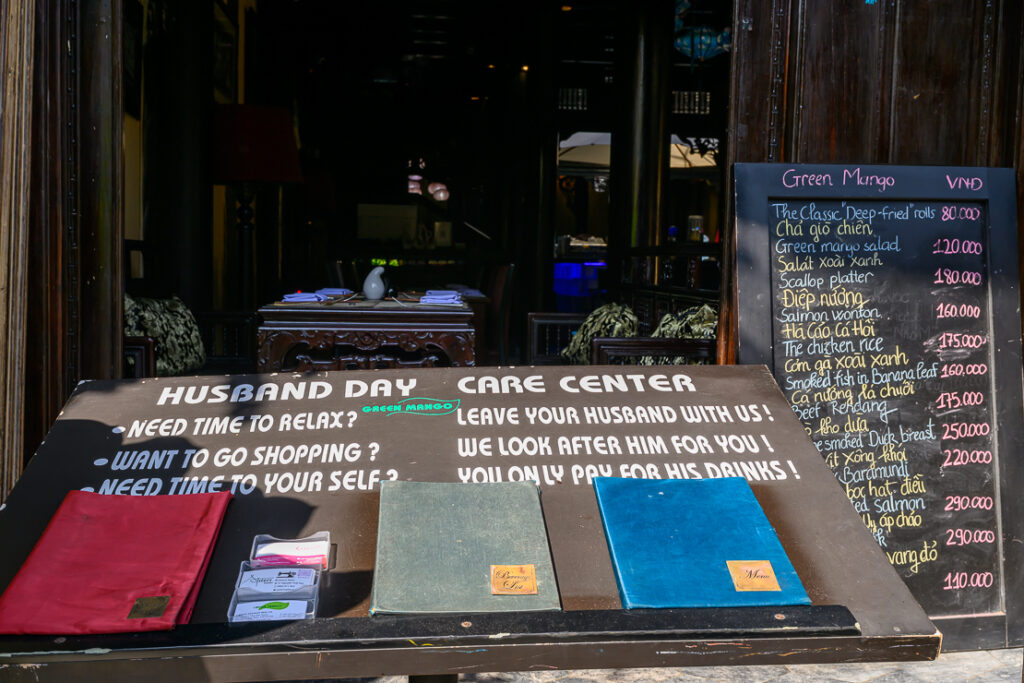 HUSBAND DAY CARE CENTER
GREEN MANGO
NEED TIME TO RELAX?
WANT TO GO SHOPPING ?
NEED TIME TO YOUR SELF?
LEAVE YOUR HUSBAND WITH US!
WE LOOK AFTER HIM FOR YOU!
YOU ONLY PAY FOR HIS DRINKS!
Beverage
List
Menu
Green Mango VNĐ
The Classic "Deep-fried" rolls 80.000
Chả giò chiên
Green mango salad 120.000
Salát xoài xanh
Scallop platter 180.000
Điệp nướng
Salmon wonton 160.000
Há Cảo Cá Hồi
The chicken rice 175.000
Cơm gà xoài xanh
Smoked fish in Banana leaf 160.000
Cá nướng lá chuối
Beef Rendang 175.000
kho dừa
smoked Duck breast 250.000
Vịt xông khói 220.000
Baramundi
bọc hạt điều
salmon 290.000
áp chảo
290.000
vang đỏ
110.000